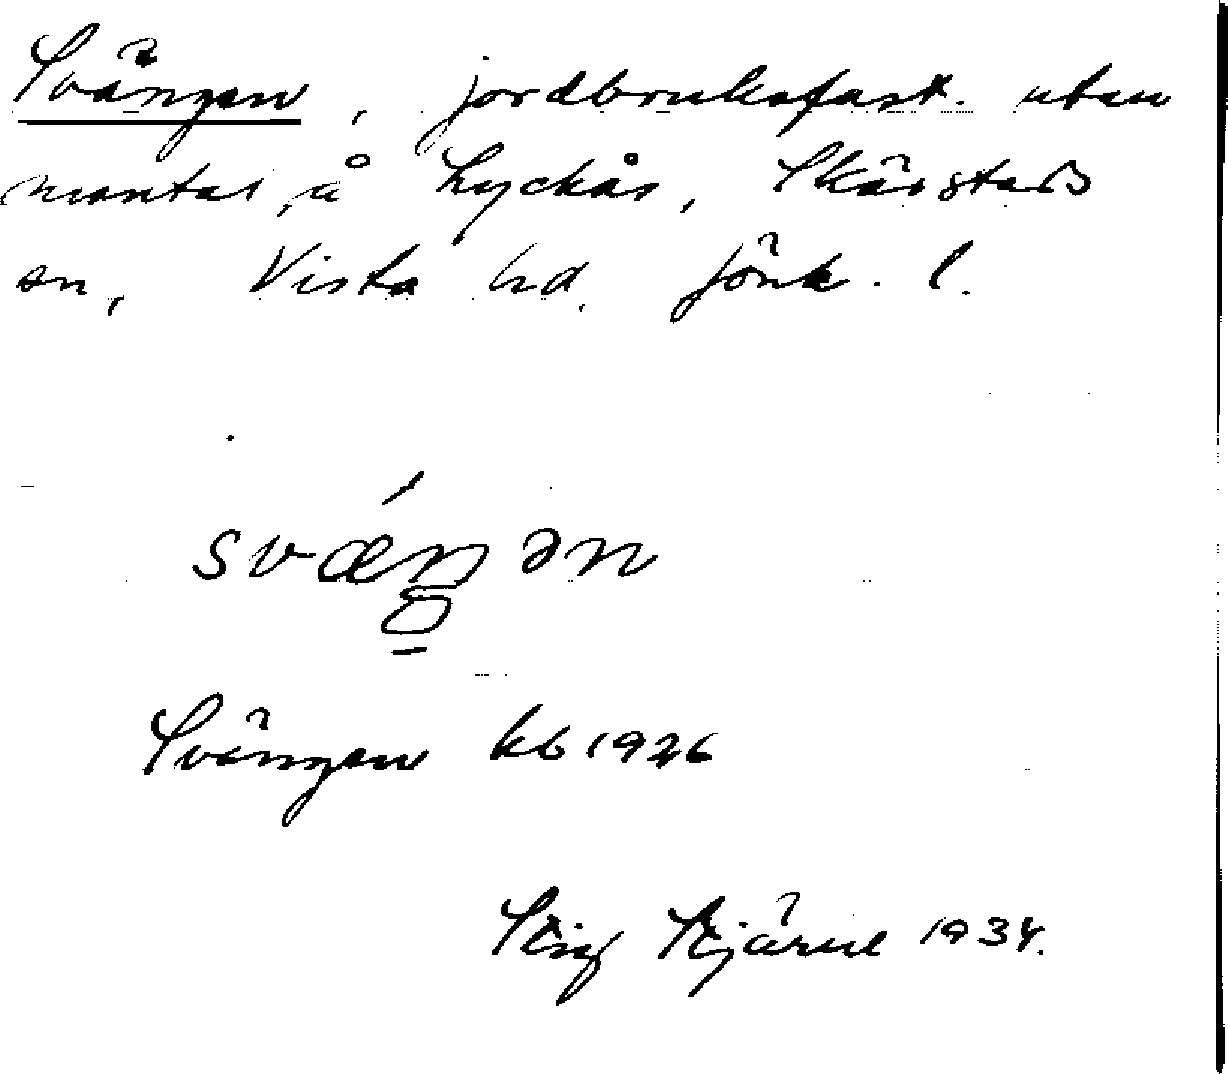 Svängen, jordbruksfast. utan
mantal, å Lyckås, Skärstads
sn, Vista hd. Jönk. l.
svǽŋən
Svängen kb 1926
Stig Stjärne 1934.